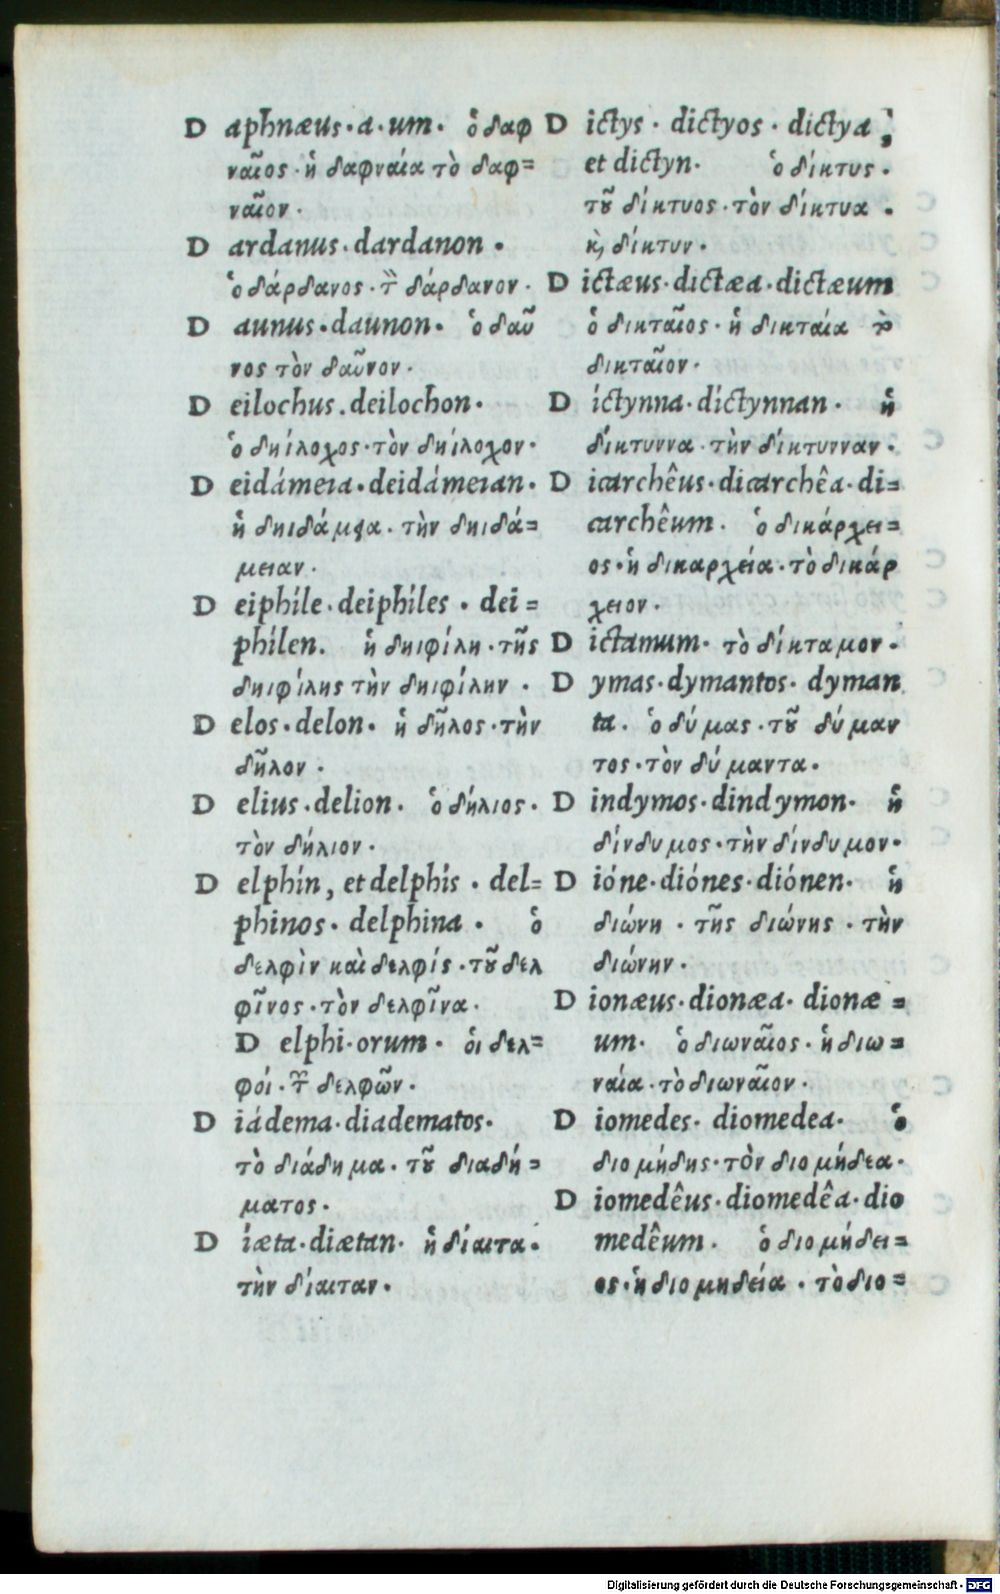 D aphnæus · a · um · ὁ δαφ
ναῖος · ἡ δαφναία τὸ δαφ=
ναῖον ·
D ardanus · dardanon ·
ὁ δάρδανος · τὸν δάρδανον ·
D aunus · daunon · ὁ δαῦ
νος τὸν δαῦνον ·
D eilochus . deilochon ·
ὁ δηίλοχος · τὸν δηίλοχον ·
D eidámeia · deidámeian ·
ἡ δηιδάμεια · τὴν δηιδά=
μειαν ·
D eiphíle · deiphíles · dei=
phílen . ἡ δηιφίλη · τῆς
δηιφίλης τὴν δηιφίλην ·
D elos · delon · ἡ δῆλος · τὴν
δῆλον ·
D elius · delion · ὁ δήλιος ·
τὸν δήλιον ·
D elphin, et delphis · del=
phinos · delphina · ὁ
δελφὶν καὶ δελφίς · τοῦ δελ
φῖνος · τὸν δελφῖνα ·
D elphi · orum · ὁι δελ=
φοί · τῶν δελφῶν ·
D iádema · diadematos ·
τὸ διάδημα · τοῦ διαδή=
ματος ·
D íæta · diætan · ἡ δίαιτα ·
τὴν δίαιταν ·
D ictys · dictyos · dictya ,
et dictyn · ὁ δίκτυς ·
τοῦ δίκτυος · τὸν δίκτυα ·
κὶ δίκτυν ·
D ictæus · dictæa · dictæum
ὁ δικταῖος · ἡ δικταία τὸ
δικταῖον ·
D íctynna · díctynnan · ἡ
δίκτυννα · τὴν δίκτυνναν ·
D icarchêus · dicarchêa · di=
carchêum · ὁ δικάρχει=
ος · ἡ δικαρχεία · τὸ δικάρ
χειον ·
D ictamum · τὸ δίκταμον ·
D ymas · dymantos · dyman
ta · ὁ δύμας · τοῦ δύμαν
τος · τὸν δύμαντα ·
D indymos · dindymon · ἡ
δίνδυμος · τὴν δίνδυμον ·
D ióne · diónes · diónen · ἡ
διώνη · τῆς διώνης · τὴν
διώνην ·
D ionæus · dionæa · dionæ =
um · ὁ διωναῖος · ἡ διω=
ναία · τὸ διωναῖον ·
D iomedes · diomedea · ὁ
διομήδης · τὸν διομήδεα ·
D iomedêus · diomedêa · dio
medêum · ὁ διομήδει=
ος · ἡ διομηδεία · τὸ διο=
Digitalisierung gefördert durch die Deutsche Forschungsgemeinschaft - DFG